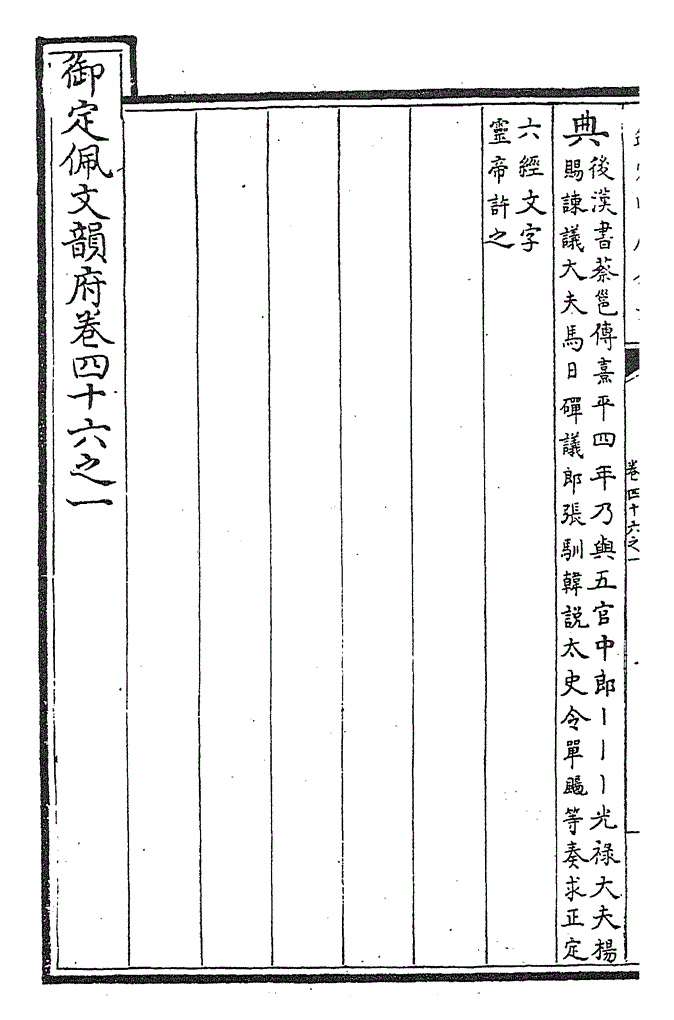 典
後漢書蔡邕傳熹平四年乃與五官中郎丨丨丨光禄大夫楊
賜諫議大夫馬日磾議郎張馴韓說太史令單颺等奏求正定
六經文字
靈帝許之
御定佩文韻府卷四十六之一
卷四十六之一